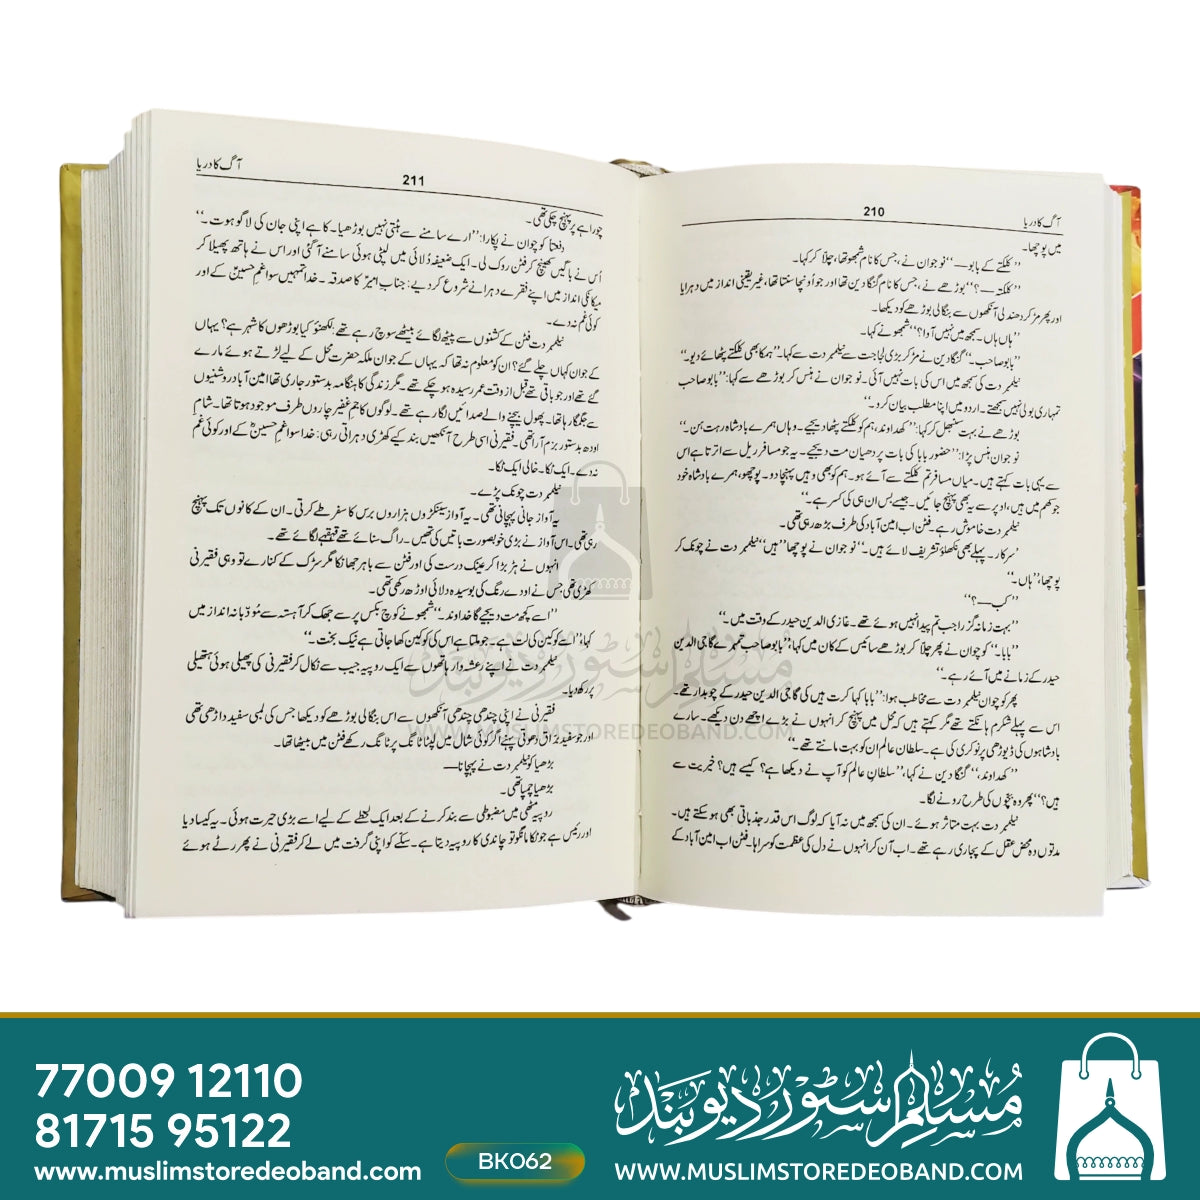 آگ کا دریا
210
میں پوچھا۔
’’کلکتے کے بابو—‘‘ نوجوان نے، جس کا نام شمبھو تھا، چلّا کر کہا۔
’’کلکتہ—؟‘‘ بوڑھے نے، جس کا نام گنگا دین تھا اور جو اُونچا سنتا تھا، غیر یقینی انداز میں دہرایا
اور پھر مڑ کر دھندلی آنکھوں سے بنگالی بوڑھے کو دیکھا۔
’’ہاں ہاں۔ سمجھ میں نہیں آوا؟‘‘ شمبھو نے کہا۔
’’بابو صاحب۔‘‘ گنگا دین نے مڑ کر بڑی لجاجت سے نیلمبر دت سے کہا۔ ’’ہم کا بھی کلکتے پٹھائے دیو۔‘‘
نیلمبر دت کی سمجھ میں اس کی بات نہیں آئی۔ نوجوان نے ہنس کر بوڑھے سے کہا: ’’بابو صاحب
تمہاری بولی نہیں سمجھتے۔ اردو میں اپنا مطلب بیان کرو۔‘‘
بوڑھے نے بہت سنبھل کر کہا: ’’کھداوند، ہم کو کلکتے پٹھا دیجیے۔ وہاں ہمرے بادشاہ رہت ہن۔‘‘
نوجوان ہنس پڑا: ’’حضور بابا کی بات پر دھیان مت دیجیے۔ یہ جو مسافر ریل سے اترتا ہے اس
سے یہی بات کہتے ہیں۔ میاں مسافر تم کلکتے سے آئے ہو۔ ہم کو بھی وہیں پہنچا دو۔ پوچھو، ہمرے بادشاہ خود
جوکھم میں ہیں، اوپر سے یہ بھی پہنچ جائیں۔ جیسے بس ان ہی کی کسر ہے۔‘‘
نیلمبر دت خاموش رہے۔ فٹن اب امین آباد کی طرف بڑھ رہی تھی۔
’’سرکار۔ پہلے بھی نکھلاؤ تشریف لائے ہیں۔‘‘ نوجوان نے پوچھا ’’ہیں‘‘ نیلمبر دت نے چونک کر
پوچھا، ’’ہاں۔‘‘
’’کب—؟‘‘
’’بہت زمانہ گزرا جب تم پیدا نہیں ہوئے تھے۔ غازی الدین حیدر کے وقت میں۔‘‘
’’بابا۔‘‘ کوچوان نے پھر چلّا کر بوڑھے سائیس کے کان میں کہا، ’’بابو صاحب تمہرے گاجی الدین
حیدر کے زمانے میں آئے رہے۔‘‘
پھر کوچوان نیلمبر دت سے مخاطب ہوا: ’’بابا کہا کرت ہیں کی گاجی الدین حیدر کے چوبدار تھے۔
اس سے پہلے شکرم ہانکتے تھے مگر کہتے ہیں کہ محل میں پہنچ کر انہوں نے بڑے اچھے دن دیکھے۔ سارے
بادشاہوں کی ڈیوڑھی پر نوکری کی ہے۔ سلطان عالم ان کو بہت مانتے تھے۔‘‘
’’کھداوند،‘‘ گنگا دین نے کہا، ’’سلطانِ عالم کو آپ نے دیکھا ہے؟ کیسے ہیں؟ خیریت سے
ہیں؟‘‘ پھر وہ بچّوں کی طرح رونے لگا۔
نیلمبر دت بہت متاثر ہوئے۔ ان کی سمجھ میں نہ آیا کہ لوگ اس قدر جذباتی بھی ہو سکتے ہیں۔
مدتوں وہ محض عقل کے پجاری رہے تھے۔ اب آن کر انہوں نے دل کی عظمت کو سراہا۔ فٹن اب امین آباد کے
آگ کا دریا
211
چوراہے پر پہنچ چکی تھی۔
دفعتاً کوچوان نے پکارا: ’’ارے سامنے سے ہٹتی نہیں بوڑھیا۔ کا ہے اپنی جان کی لاگو ہوت۔‘‘
اُس نے باگیں کھینچ کر فٹن روک لی۔ ایک ضعیفہ دُلائی میں لپٹی ہوئی سامنے آگئی اور اس نے ہاتھ پھیلا کر
میکانکی انداز میں اپنے فقرے دہرانے شروع کر دیے: جناب امیرؑ کا صدقہ۔ خدا تمہیں سوا غم حسینؑ کے اور
کوئی غم نہ دے۔
نیلمبر دت فٹن کے کشنوں سے پیٹھ لگائے بیٹھے سوچ رہے تھے: لکھنؤ کیا بوڑھوں کا شہر ہے؟ یہاں
کے جوان کہاں چلے گئے؟ ان کو معلوم نہ تھا کہ یہاں کے جوان ملکہ حضرت محل کے لیے لڑتے ہوئے مارے
گئے تھے اور جو باقی تھے قبل از وقت عمر رسیدہ ہو چکے تھے۔ مگر زندگی کا ہنگامہ بدستور جاری تھا امین آباد روشنیوں
سے جگمگا رہا تھا۔ پھول بیچنے والے صدائیں لگا رہے تھے۔ لوگوں کا جم غفیر چاروں طرف موجود ہوتا تھا۔ شام
اودھ بدستور بزم آرا تھی۔ فقیرنی اسی طرح آنکھیں بند کیے کھڑی دہراتی رہی: خدا سوا غم حسینؑ کے اور کوئی غم
نہ دے۔ ایک ٹکا۔ خالی ایک ٹکا۔
نیلمبر دت چونک پڑے۔
یہ آواز جانی پہچانی تھی۔ یہ آواز سینکڑوں ہزاروں برس کا سفر طے کرتی۔ ان کے کانوں تک پہنچ
رہی تھی۔ اس آواز نے بڑی خوبصورت باتیں کی تھیں۔ راگ سنائے تھے قہقہے لگائے تھے۔
انہوں نے ہڑبڑا کر عینک درست کی اور فٹن سے باہر جھانکا مگر سڑک کے کنارے تو وہی فقیرنی
کھڑی تھی جس نے اودے رنگ کی بوسیدہ دلائی اوڑھ رکھی تھی۔
’’اسے کچھ مت دیجیے گا خداوند۔‘‘ شمبھو نے کوچ بکس پر سے جھک کر آہستہ سے مودّبانہ انداز میں
کہا، ’’اسے کوکین کی لت ہے۔ جو ملتا ہے اس کی کوکین کھا جاتی ہے نیک بخت۔‘‘
نیلمبر دت نے اپنے رعشہ دار ہاتھوں سے ایک روپیہ جیب سے نکال کر فقیرنی کی پھیلی ہوئی ہتھیلی
پر رکھ دیا۔
فقیرنی نے اپنی چندھی چندھی آنکھوں سے اس بنگالی بوڑھے کو دیکھا جس کی لمبی سفید داڑھی تھی
اور جو سفید برّاق دھوتی پہنے اگرگئی شال میں لپٹا ٹانگ پر ٹانگ رکھے فٹن میں بیٹھا تھا۔
بڑھیا کو نیلمبر دت نے پہچانا—
بڑھیا چمپا تھی۔
روپیہ مٹھی میں مضبوطی سے بند کرنے کے بعد ایک لحظے کے لیے اسے بڑی حیرت ہوئی۔ یہ کیسا دیا
اور رئیس ہے جو ٹکا مانگو تو چاندی کا روپیہ دیتا ہے۔ سکّے کو اپنی گرفت میں لے کر فقیرنی نے پھر رٹے ہوئے
مسلم سٹور دیوبند
WWW.MUSLIMSTOREDEOBAND.COM
77009 12110
81715 95122
www.muslimstoredeoband.com
BK062
مسلم سٹور دیوبند
WWW.MUSLIMSTOREDEOBAND.COM